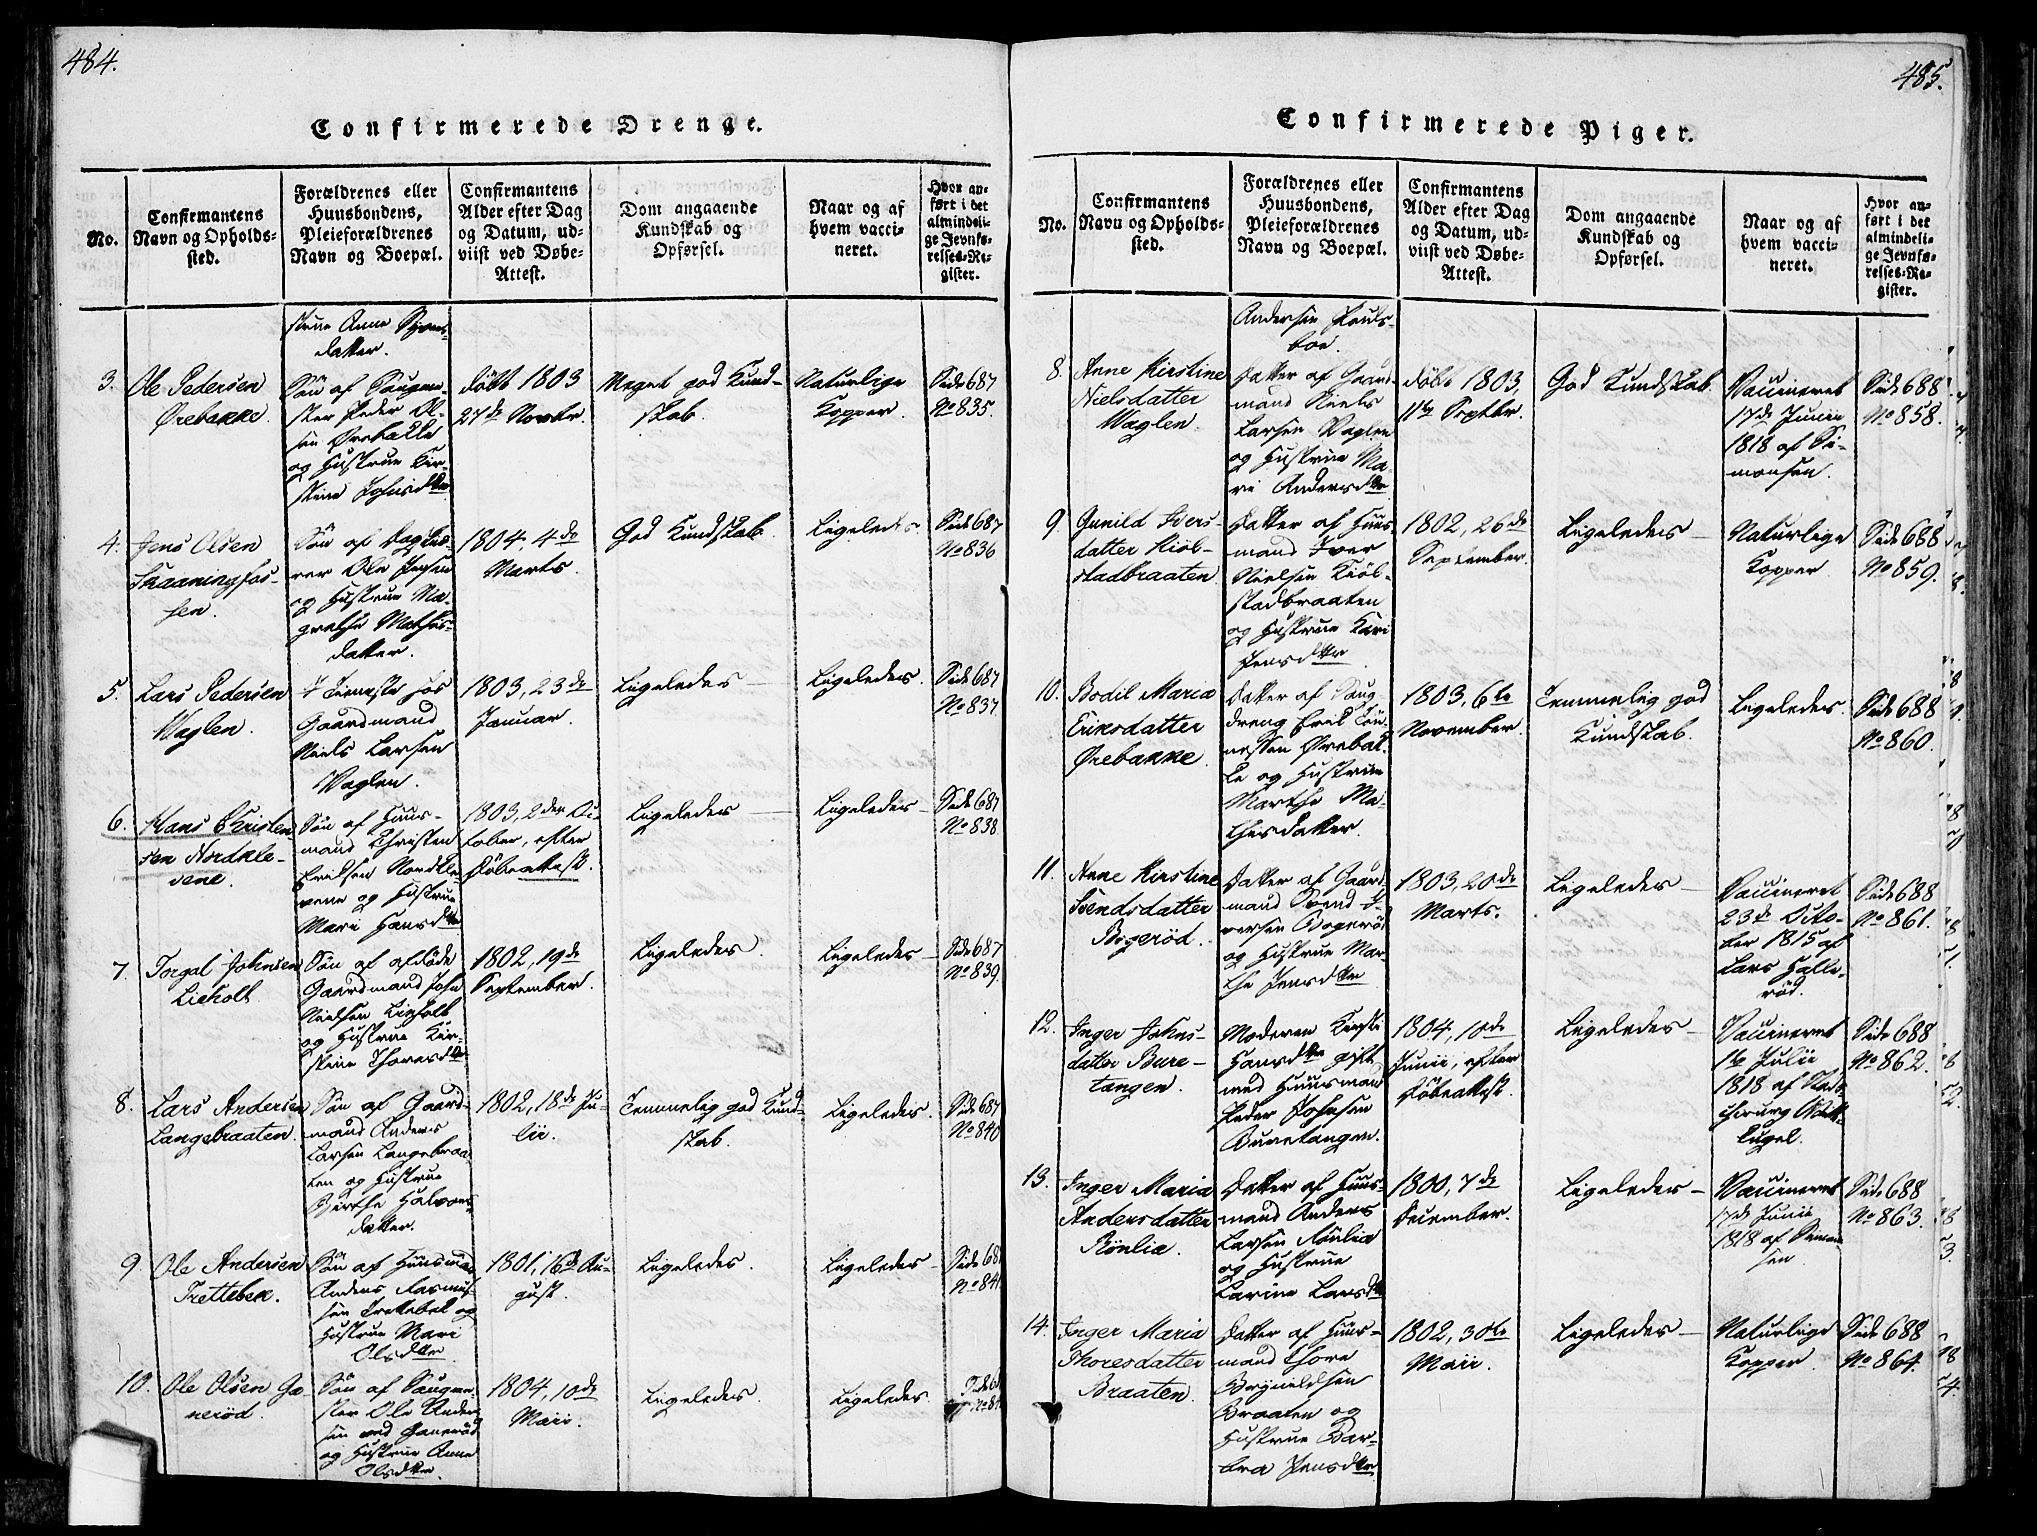 484.
Confirmerede Drenge.
No.
Confirmantens
Navn og Opholds-
sted.
Forældrenes eller
Huusbondens,
Pleieforældrenes
Navn og Boepæl.
Confirmantens
Alder efter Dag
og Datum, ud-
viist ved Døbe-
Attest.
Dom angaaende
Kundskab og
Opførsel.
Naar og af
hvem vacci-
neret.
Hvor an-
ført i det
almindeli-
ge Jevnfø-
relses-Re-
gister.
strue Anne
datter.
3.
Ole Pedersen
Ørebakke.
Søn af Saugme-
ster Peder Ol-
sen Ørebakke
og Hustrue Kir-
stine Johnsdtr
døbt 1803
27de Novbr.
Meget god Kund-
skab.
Naturlige
Kopper.
Side 687
No 835.
4.
Jens Olsen
Skaaningfos-
sen.
Søn af Dagleie-
rer Ole Jensen
og Hustrue Ma-
grethe Mathis-
datter.
1804, 4de
Marts.
God Kundskab.
Ligeledes.
Side 687
No 836
5.
Lars Pedersen
Waglen.
I Tieneste hos
Gaardmand
Niels Larsen
Waglen.
1803, 23de
Januar.
Ligeledes
Ligeledes.
Side 687
No 837.
6.
Hans Christen
sen Nordkle-
vene.
Søn af Huus-
mand Christen
Eriksen Nordkle-
vene og Hustrue
Mari Hansdtr
1803, 2den Oc-
tober, efter
Døbeattest.
Ligeledes
Ligeledes
Side 687
No 838.
7.
Torgal Johnsen
Lieholt.
Søn af afdøde
Gaardmand John
Nielsen Lieholt
og Hustrue Kir-
stine Thoresdtr
1802, 19de
September.
Ligeledes.
Ligeledes
Side 687
No 839.
8.
Lars Andersen
Langebraaten.
Søn af Gaard-
mand Anders
Larsen Langebraa-
ten og Hustrue
Berthe Halvors
datter.
1802, 18de Ju-
lii.
Temmelig god Kund-
skab.
Ligeledes.
Side 687
No 840
9
Ole Andersen
Trettebek.
Søn af Huusmand
Anders Rasmus-
sen Trettebek og
Hustrue Mari
Olsdtr.
1801, 16de Au-
gust.
Ligeledes.
Ligeledes
Side 68
No 841
10.
Ole Olsen Ga
nerød.
Søn af Saugme-
ster Ole Ander
sen ved Ganerød
og Hustrue Anne
Olsdtr.
1804, 10de
Maii.
Ligeledes
Ligeledes
Side 6
No 84
485.
Confirmerede Piger.
No.
Confirmantens
Navn og Opholds-
sted.
Forældrenes eller
Huusbondens,
Pleieforældrenes
Navn og Boepæl.
Confirmantens
Alder efter Dag
og Datum, ud-
viist ved Døbe-
Attest.
Dom angaaende
Kundskab og
Opførsel.
Naar og af
hvem vacci-
neret.
Hvor an-
ført i det
almindeli-
ge Jevnfø-
relses-Re-
gister.
Andersen Pouls-
boe.
8.
Anne Kirstine
Nielsdatter
Waglen.
Datter af Gaard-
mand Niels
Larsen Waglen
og Hustrue Ma-
ri Andersdtr
døbt 1803,
11te Septbr.
God Kundskab.
Vaccineret
17de Junii
1818 af Si-
monsen.
Side 688
No 858.
9.
Gunild Ivers-
datter Kiøl-
stadbraaten
Datter af Huus-
mand Iver
Nielsen Kiøl-
stadbraaten
og Hustrue Kari
Jensdtr
1802, 26de
September.
Ligeledes
Naturlige
Kopper
Side 688
No 859.
10.
Bodil Maria
Eriksdatter
Ørebakke.
Datter af Saug
dreng Erik Tøn-
nesen Ørebak-
ke og Hustrue
Marthe Ma-
thisdatter.
1803, 6te
November.
Temmelig god
Kundskab.
Ligeledes.
Side 688
No 860.
11.
Anne Kirstine
Svendsdatter
Bogerød.
Datter af Gaard
mand Svend I-
versen Bogerød
og Hustrue Mar-
the Jensdtr
1803, 20de
Marts.
Ligeledes
Vaccineret
23de Octo-
ber 1815 af
Lars Halle-
rød.
Side 688
No 861.
12.
Inger Johns-
datter Bure-
tangen.
Moderen Kirsti
Hansdtr gift
med Huusmand
Peder Johnsen
Buretangen.
1804, 10de
Junii, efter
Døbeattest.
Ligeledes
Vaccineret
1te Julii
1818 af
chirurg
Kugel.
Side 688
No 862.
13.
Inger Maria
Andersdatter
Rønlia.
Datter af Huus-
mand Anders
Larsen Rønlia
og Hustrue
Karine Larsdtr
1800, 7de
December.
Ligeledes
Vaccineret
17de Junii
1818 af Simon-
sen
Side 688
No 863.
14.
Inger Maria
Thoresdatter
Braaten.
Datter af Huus-
mand Thore
Brynildsen
Braaten og
Hustrue Bar-
bra Jensdtr
1802, 30te
Maii.
Ligeledes
Naturlige
Kopper.
Side 688
No 864.